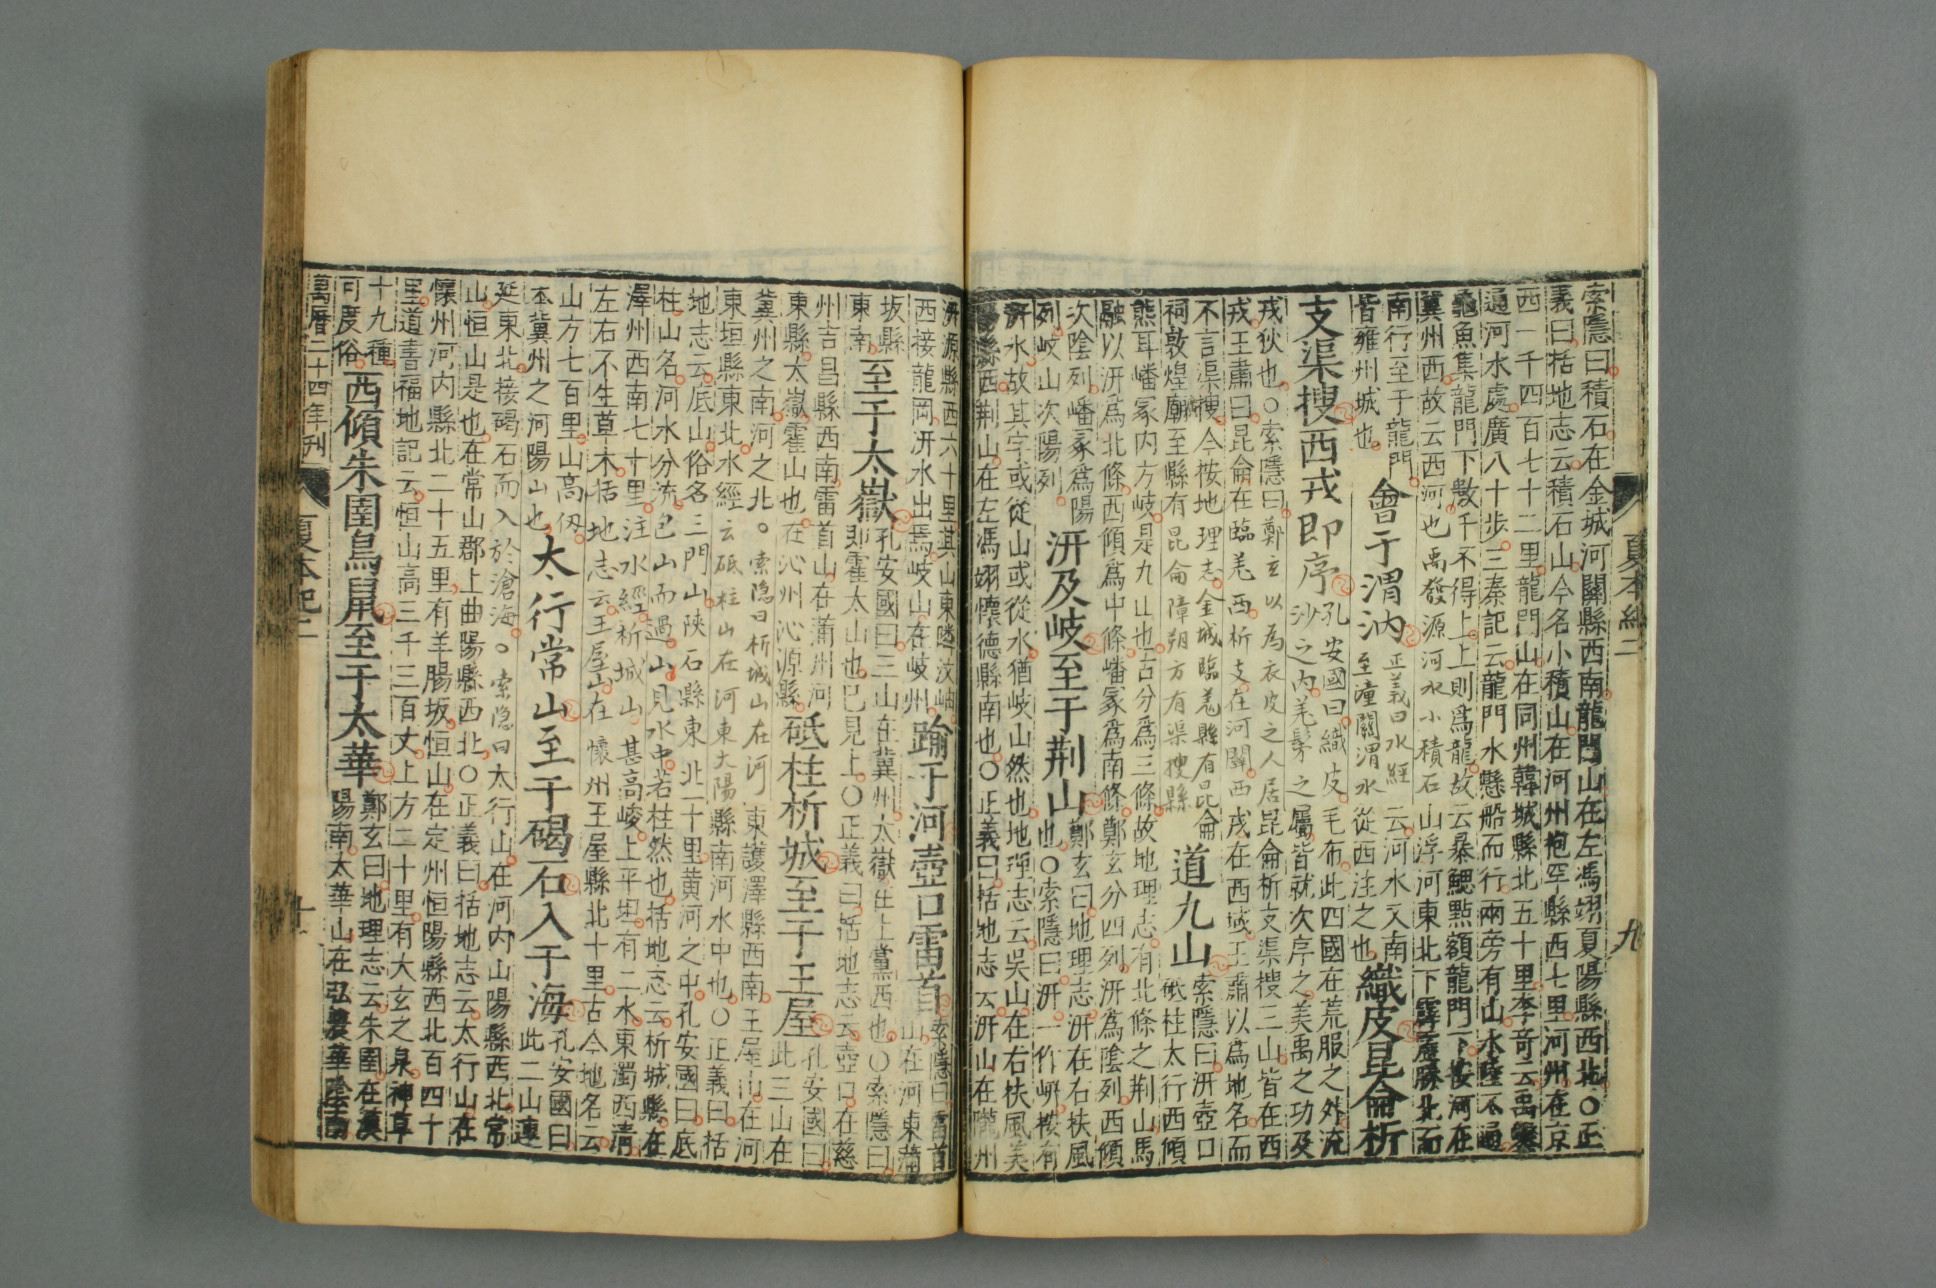 夏本紀二 九
索隱曰積石在金城河關縣西南龍門山在左馮翊夏陽縣西北〇正
義曰括地志云積石山今名小積山在河州抱罕縣西七里河州在京
西一千四百七十二里龍門山在同州韓城縣北五十里李奇云禹鑿
通河水處廣八十步三秦記云龍門水懸船而行兩旁有山水陸不通
龜魚集龍門下數千不得上上則爲龍故云暴鰓點額龍門下按河在
冀州西故云西河也禹發源河水小積石山浮河東北下歷勝北而
南行至于龍門
皆雍州城也
會于渭汭
正義曰水經云河水又南
至潼關渭水從西注之也
織皮昆侖析
支渠搜西戎即序
孔安國曰織皮毛布此四國在荒服之外流
沙之內羌髳之屬皆就次序之美禹之功及
戎狄也〇索隱曰鄭玄以為衣皮之人居昆侖析支渠搜三山皆在西
戎王肅曰昆侖在臨羌西析支在河關西戎在西域王肅以爲地名而
不言渠搜今按地理志金城臨羌縣有昆侖
祠敦煌廟至縣有昆侖障朔方有渠搜縣
道九山
索隱曰汧壺口
砥柱太行西傾
熊耳嶓冢內方岐是九山也古分爲三條故地理志有北條之荆山馬
融以汧爲北條西傾爲中條嶓冢爲南條鄭玄分四列汧爲陰列西傾
次陰列嶓冢爲陽
列岐山次陽列
汧及岐至于荆山
鄭玄曰地理志汧在右扶風
也〇索隱曰汧一作岍按有
汧水故其字或從山或從水猶岐山然也地理志云吳山在右扶風美
縣西荆山在左馮翊懷德縣南也〇正義曰括地志云汧山在隴州
汧源縣西六十里其山東隣汶岫
西接龍岡汧水出焉岐山在岐州
踰于河壺口雷首
索隱曰雷首
山在河東蒲
坂縣
東南
至于太嶽
孔安國曰三山在冀州太嶽在上黨西也〇索隱曰
即霍太山也已見上〇正義曰括地志云壺口在慈
州吉昌縣西南雷首山在蒲州河
東縣太嶽霍山也在沁州沁源縣
砥柱析城至于王屋
孔安國曰
此三山在
冀州之南河之北。索隐曰析城山在河東護澤縣西南王屋山在河
東垣縣東北水經云砥柱山在河東大陽縣南河水中也〇正義曰括
地志云底山俗名三門山陝石縣東北二十里黃河之中孔安國曰底
柱山名河水分流包山而過山見水中若柱然也括地志云析城縣在
澤州西南七十里注水經析城山甚高峻上平坦有二水東濁西清
左右不生草木括地志云王屋山在懷州王屋縣北十里古今地名云
山方七百里山高仞
本冀州之河陽山也
太行常山至于碣石入于海
孔安國曰
此二山連
延東北接碣石而入於滄海。索隐曰太行山在河內山陽縣西北常
山恒山是也在常山郡上曲陽縣西北〇正義曰括地志云太行山在
懷州河內縣北二十五里有羊腸坂恒山在定州恒陽縣西北百四十
里道書福地記云恒山高三千三百丈上方二十里有大玄之泉神草
十九種
可度俗
西傾朱圉鳥鼠至于太華
鄭玄曰地理志云朱圉在漢
陽南太華山在弘農華陰南
萬曆二十四年刊 夏本紀二 十